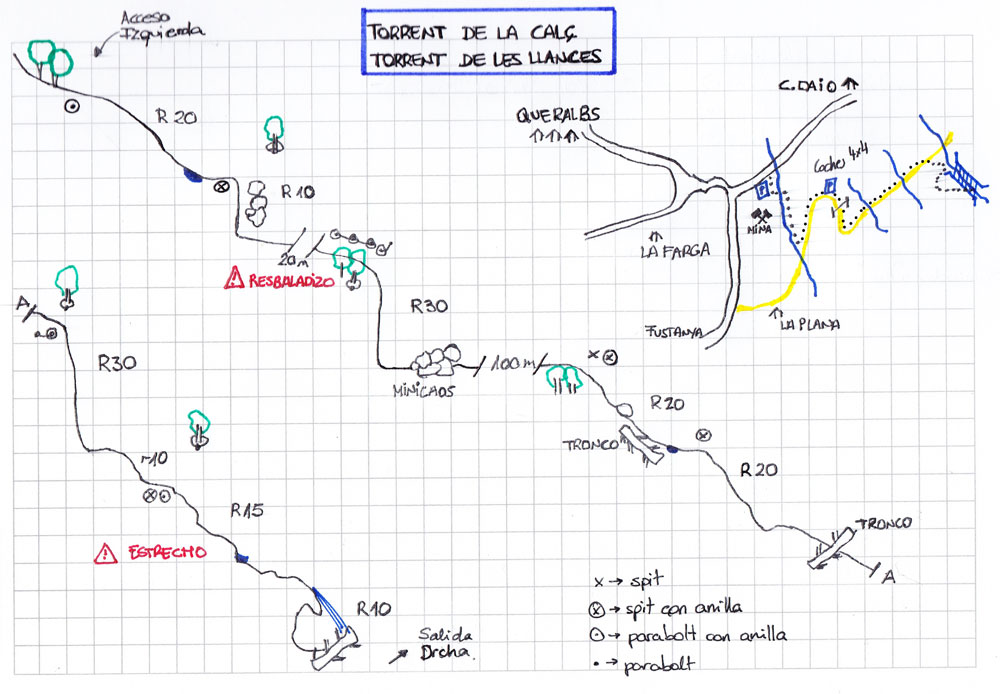 Acceso
Izquierda
TORRENT DE LA CALÇ
TORRENT DE LES LLANCES
R 20
R 10
20m
RESBALADIZO
R30
MINICAOS
100m
R20
TRONCO
R20
TRONCO
A
A
R30
r10
R15
ESTRECHO
R10
Salida
Drcha.
QUERALBS
C. DAIO
Coches 4x4
P
P
MINA
LA FARGA
FUSTANYA
LA PLANA
x → spit
⊗ → spit con anilla
⊙ → parabolt con anilla
• → parabolt